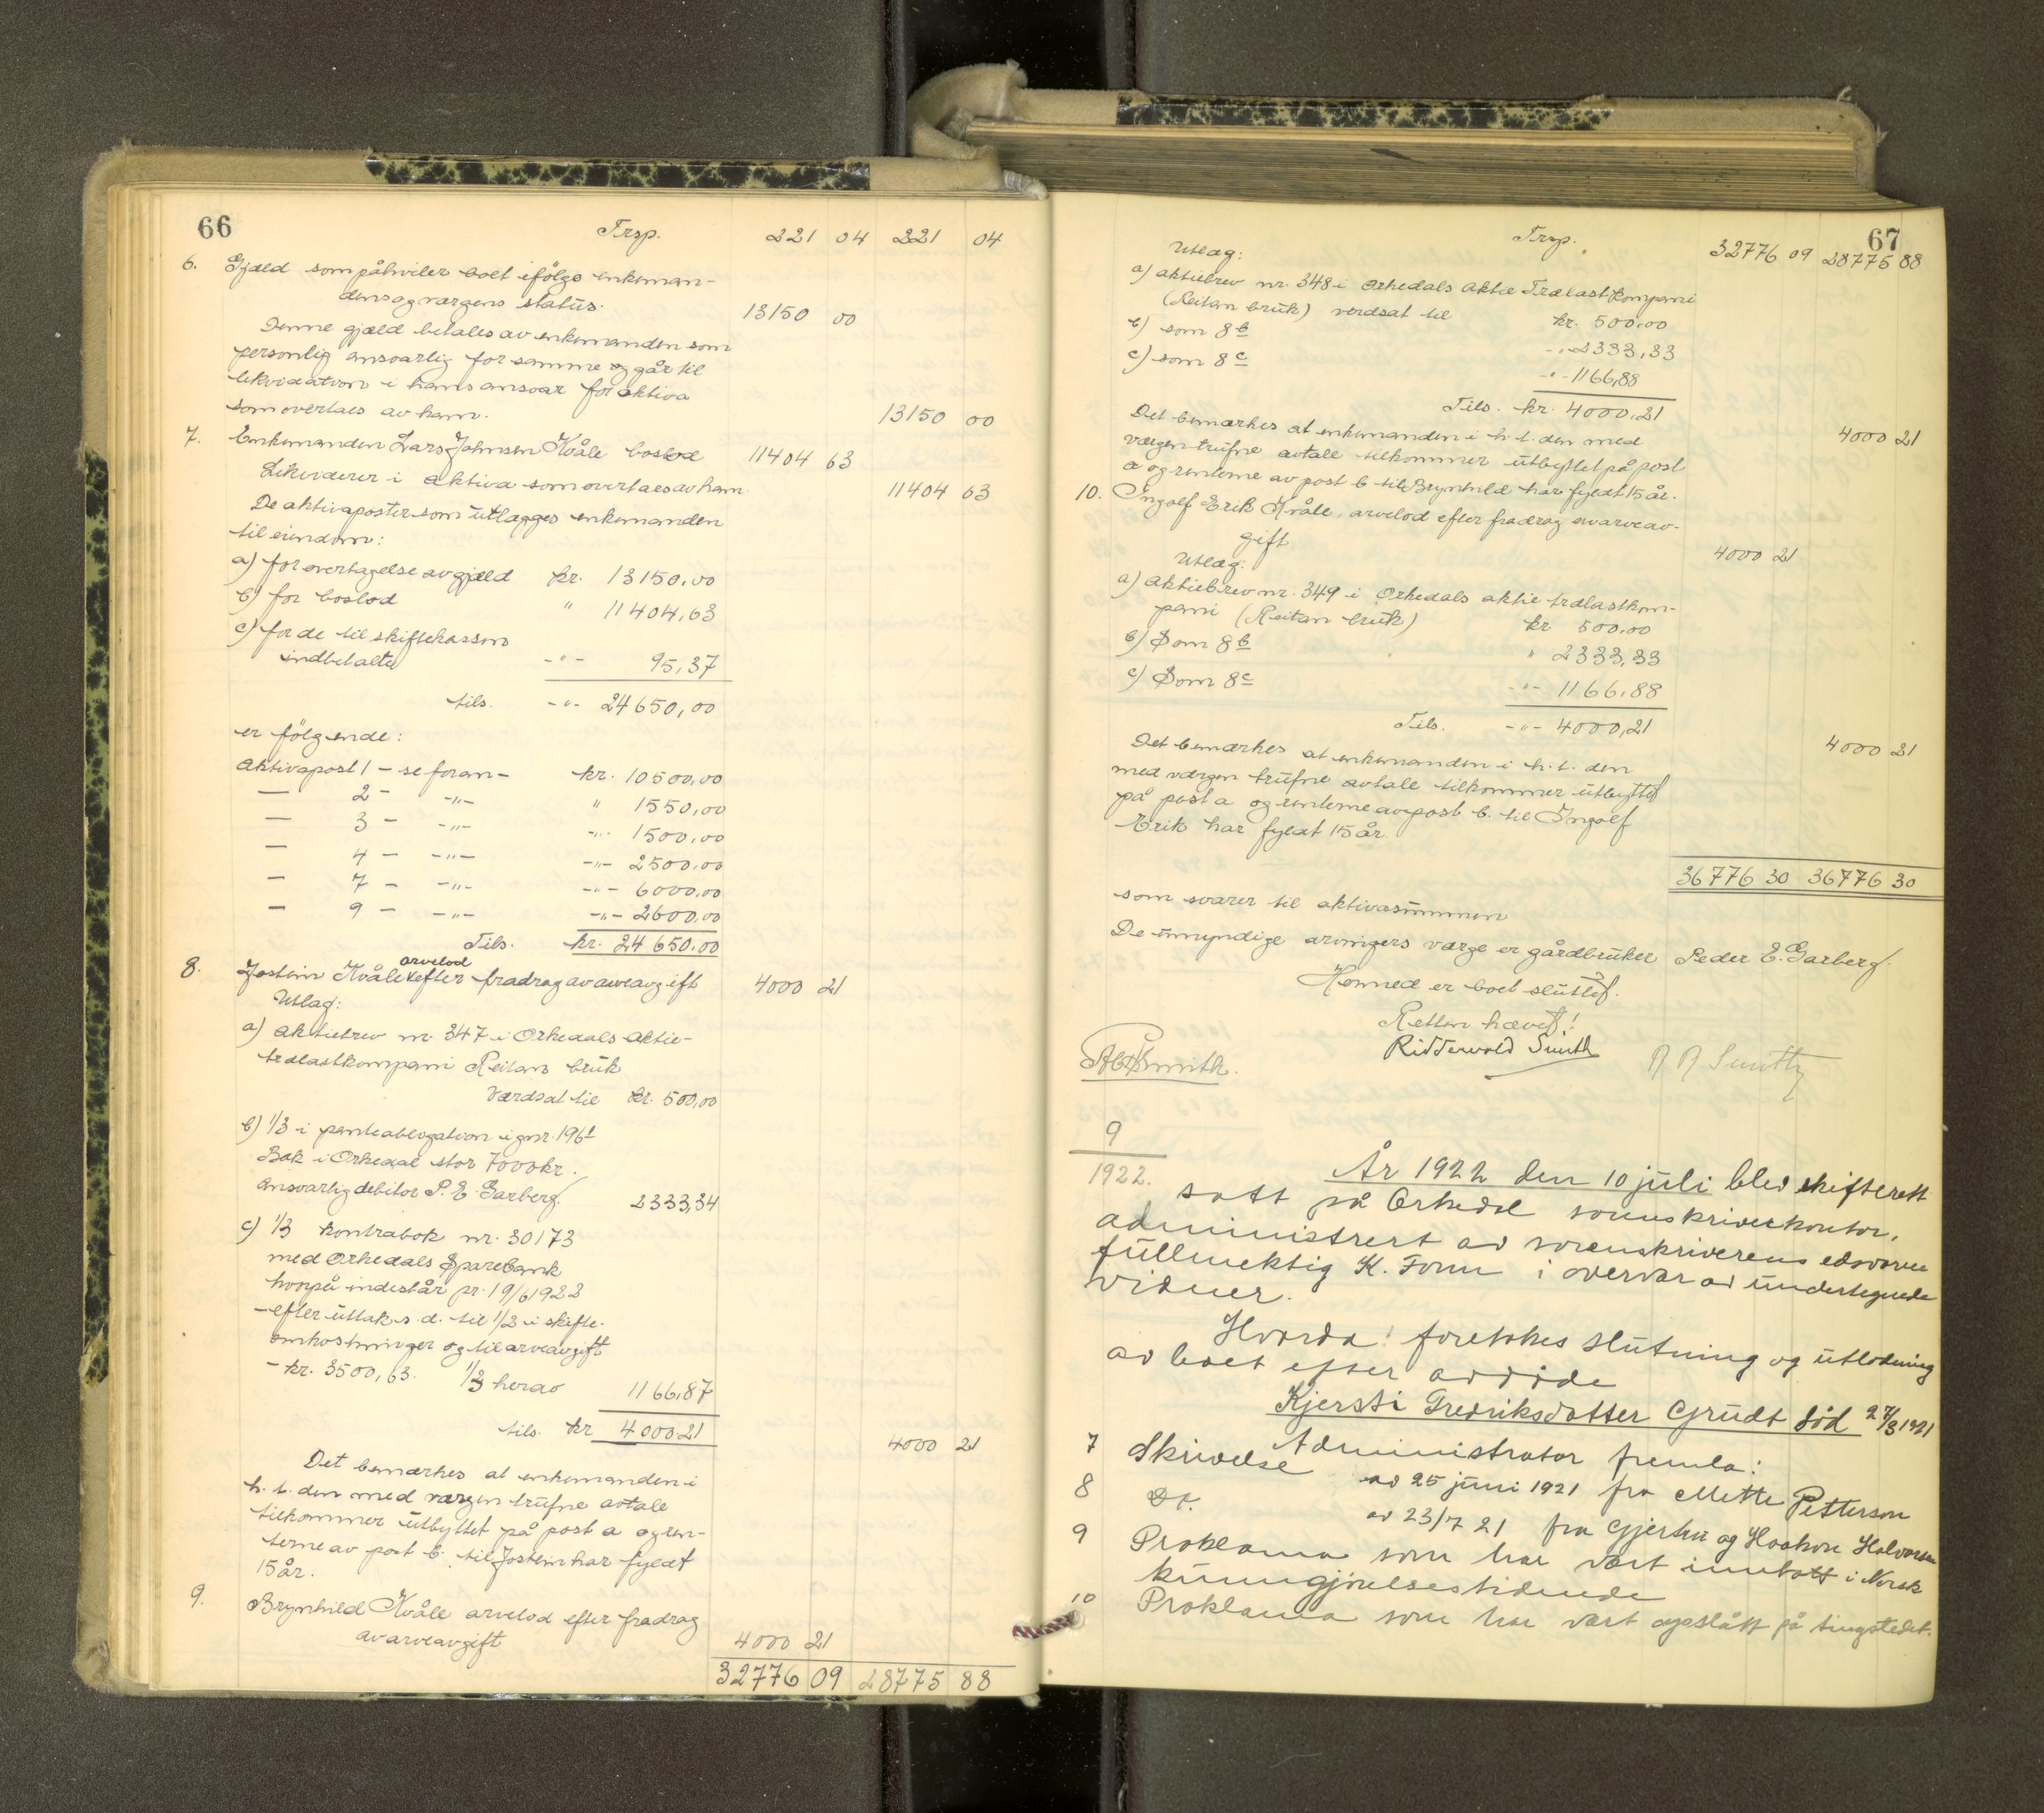 66
Trsp. 221 04 221 04
6. Gjæld som påhviler boet ifølge enkeman-
dens og værgens status. 13150 00
Denne gjæld betales av enkemanden som
personlig ansvarlig for samme og går til
likvidation i hans ansvar for aktiva
som overtaes av ham. 13150 00
7. Enkemanden Lars Johnsen Kvåle boslod 11404 63
Likviderer i aktiva som overtaes av ham. 11404 63
De aktivaposter som utlægges enkemanden
til eiendom:
a) for overtagelse av gjæld kr. 13150,00
b) for boslod " 11404,63
c) for de til skiftekassen
indbetalte -"- 95,37
tils. -"- 24650,00
er følgende:
Aktivapost 1 - se foran - kr. 10500,00
— 2 - -"- " 1550,00
— 3 - -"- -"- 1500,00
— 4 - -"- -"- 2500,00
— 7 - -"- -"- 6000,00
— 9 - -"- -"- 2600,00
Tils. kr. 24650.00
8. Jostein Kvåle arvelod efter fradrag av arveavgift 4000 21
Utlæg:
a) aktiebrev nr. 347 i Orkedals Aktie-
trælastkompani Reitans bruk
Værdsat til kr. 500,00
b) 1/3 i panteobligation i gnr. 196 1
Bak i Orkedal stor 7000 kr.
Ansvarlig debitor P. E. Garberg 2333,34
c) 1/3 kontrabok nr. 30173
med Orkedals Sparebank
hvorpå indestår pr. 19/6 1922
- efter uttak s. d. til 1/2 i skifte-
omkostninger og til arveavgift
- kr. 3500,63. 1/3 herav 1166,87
tils. kr 4000.21
4000 21
Det bemærkes at enkemanden i
h. t. den med værgen trufne avtale
tilkommer utbyttet på post a og ren-
terne av post b. til Jostein har fyldt
15 år.
9. Brynhild Kvåle arvelod efter fradrag
av arveavgift 4000 21
32776 09 28775 88
67
Trsp. 32776 09 28775 88
Utlæg:
a) aktiebrev nr. 348 i Orkedals Aktie Trælastkompani
(Reitan bruk) verdsat til kr. 500,00
b) som 8 b -"- 2333,33
c) som 8 c -"- 1166,88
Tils. kr. 4000,21
4000 21
Det bemærkes at enkemanden i h. t. den med
værgen trufne avtale tilkommer utbyttet på post
a og renterne av post b til Brynhild har fyldt 15 år.
10. Ingolf Erik Kvåle, arvelod efter fradrag av arveav-
gift 4000 21
Utlæg:
a) Aktiebrev nr. 349 i Orkedals aktie trælastkom-
pani (Reitan bruk) kr. 500.00
b) Som 8 b " 2333,33
c) Som 8 c -"- 1166.88
Tils. -"- 4000,21
4000 21
Det bemærkes at enkemanden i h. t. den
med værgen trufne avtale tilkommer utbyttet
på post a og renterne av post b. til Ingolf
Erik har fyldt 15 år.
36776 30 36776 30
som svarer til aktivasummen
De umyndige arvingers værge er gårdbruker Peder E. Garberg.
Hermed er boet sluttet.
Retten hævet!
Ridderwold Smith
Smith.
Smith
9
1922.
År 1922 den 10 juli blev skifterett
satt på Orkedal sorenskriverkontor,
administrert av sorenskriverens edsvorne
fullmektig K. Fonn i overvær av undertegnede
vidner.
Hvorda: foretokes slutning og utlodning
av boet efter avdøde
Kjersti Fredriksdatter Grudt død 27/3 1921
Administrator fremla:
7 Skrivelse av 25 juni 1921 fra Mette Petterson
8 Do. av 23/7 21 fra Gjertru og Haakon Halvorsen
9 Proklama som har vært inntatt i Norsk
kunngjørelsestidende
10 Proklama som har vært opslått på tingstedet.